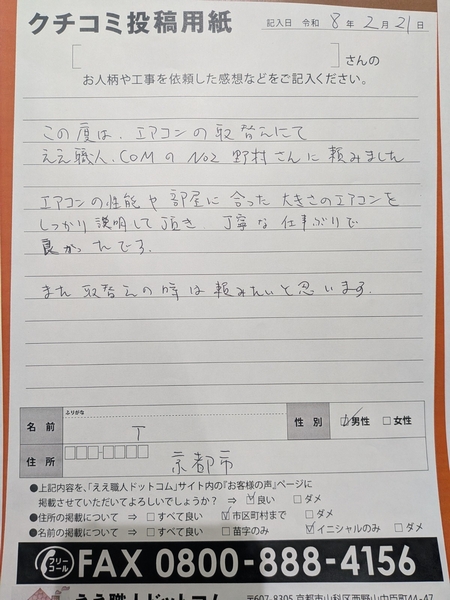 クチコミ投稿用紙
記入日 令和 8年 2月 21日
[ ]さんの
お人柄や工事を依頼した感想などをご記入ください。
この度は、エアコンの取替えにて
ええ職人.COMのNo2 野村さんに頼みました
エアコンの性能や部屋に合った大きさのエアコンを
しっかり説明して頂き 丁寧な仕事ぶりで
良かったです。
また取替えの時は頼みたいと思います。
ふりがな
名前 T 性別 ☑男性 □女性
住所 □□□-□□□□ 京都市
●上記内容を、「ええ職人ドットコム」サイト内の『お客様の声』ページに
掲載させていただいてよろしいでしょうか? ⇒ ☑良い □ダメ
●住所の掲載について ⇒ □すべて良い ☑市区町村まで □ダメ
●名前の掲載について ⇒ □すべて良い □苗字のみ ☑イニシャルのみ □ダメ
フリーコール FAX 0800-888-4156
ええ職人ドットコム 〒607-8305 京都市山科区西野山中臣町44-47